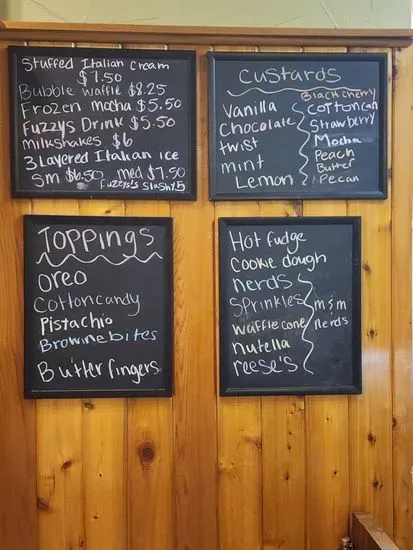 Stuffed Italian Cream
$7.50
Bubble Waffle $8.25
Frozen mocha $5.50
Fuzzys Drink $5.50
milkshakes $6
3 Layered Italian ice
Sm $6.50 med $7.50
Fuzzys's Slushy 5
Custards
Vanilla
Chocolate
twist
mint
Lemon
Black cherry
Cotton can
Strawberry
Mocha
Peach
Butter
Pecan
Toppings
Oreo
Cottoncandy
Pistachio
Browniebites
Butterfingers
Hot fudge
Cookie dough
nerds
Sprinkles
waffle cone
nutella
reese's
m&m
nerds